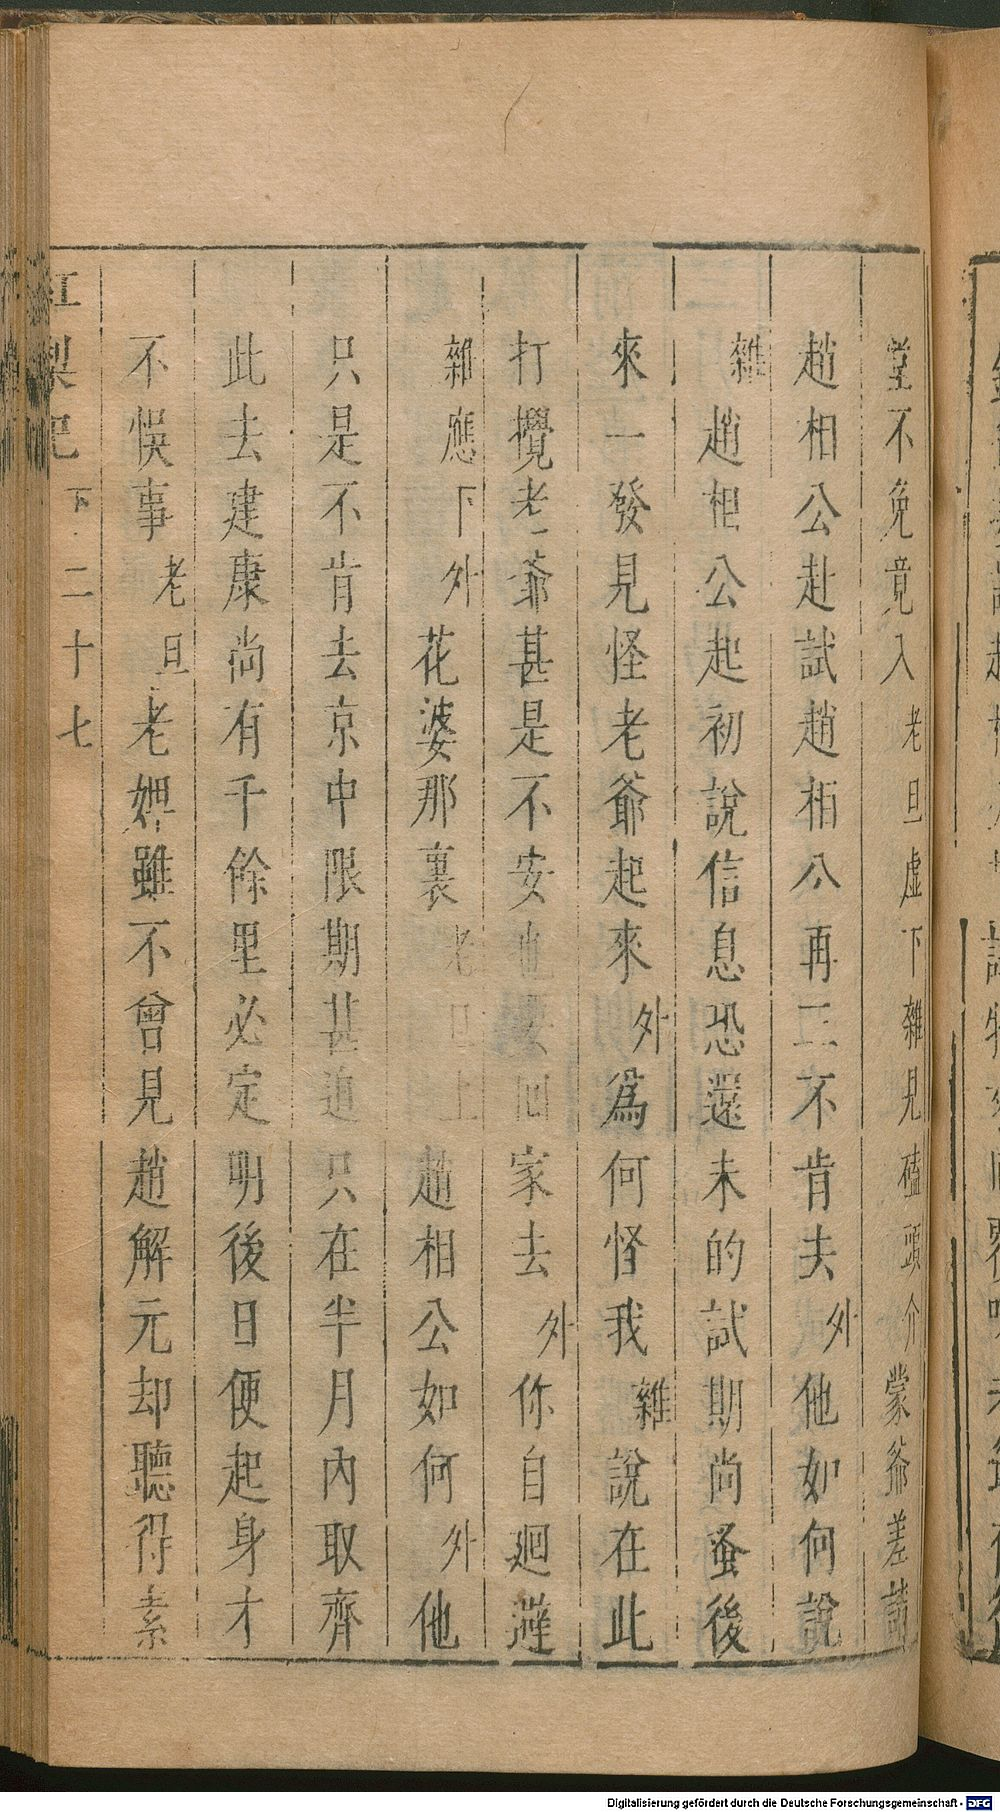 堂不免竟入老旦虛下雜見磕頭介蒙爺差請
趙相公赴試趙相公再三不肯去外他如何說
雜趙相公起初說信息恐還未的試期尚蚤後
來一發見怪老爺起來外爲何怪我雜說在此
打攪老爺甚是不安也要回家去外你自迴避
雜應下外花婆那裏老旦上趙相公如何外他
只是不肯去京中限期甚迫只在半月內取齊
此去建康尚有千餘里必定明後日便起身才
不悞事老旦老媳雖不曾見趙解元却聽得素
紅梨記 下 二十七
Digitalisierung gefördert durch die Deutsche Forschungsgemeinschaft - DFG